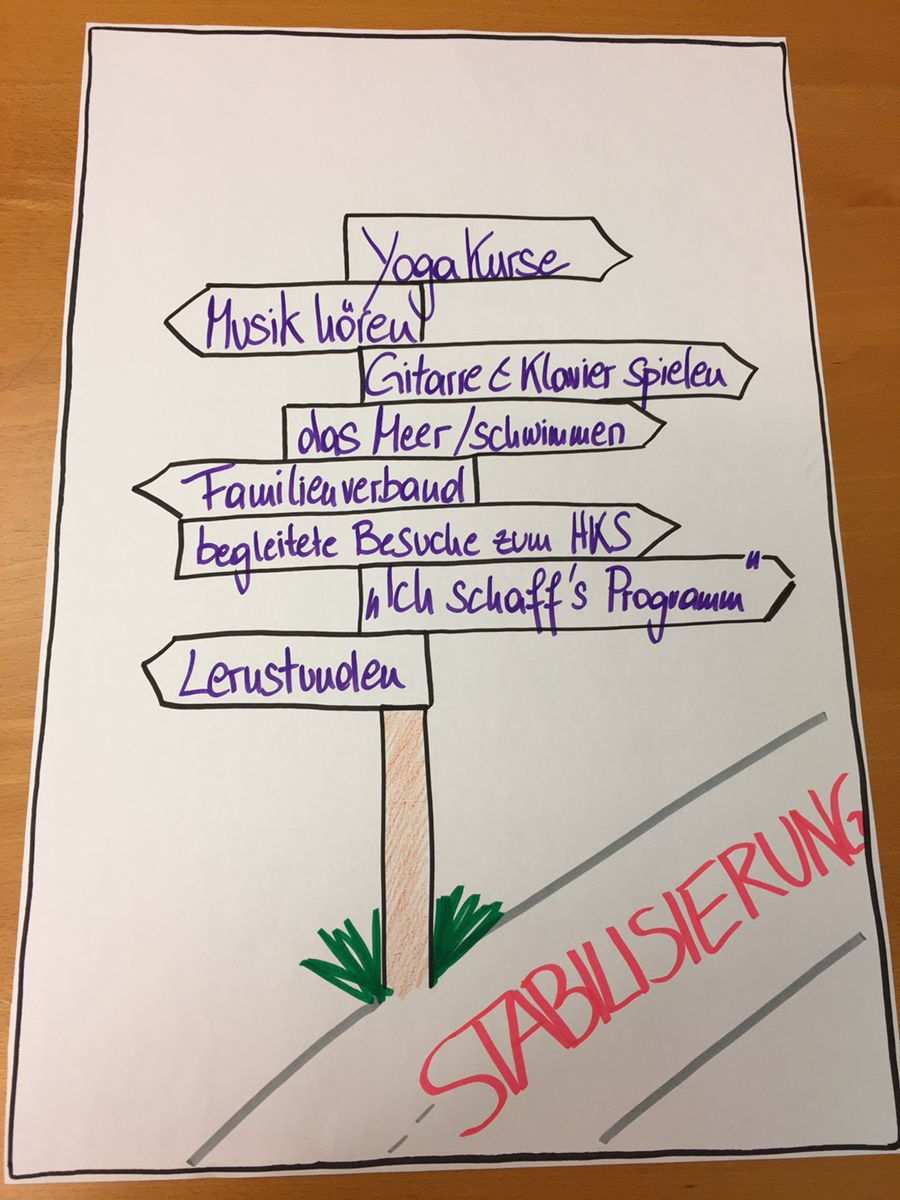 Yoga Kurse
Musik hören
Gitarre & Klavier spielen
das Meer/schwimmen
Familienverband
begleitete Besuche zum HKS
„Ich schaff's Programm"
Lernstunden
STABILISIERUNG